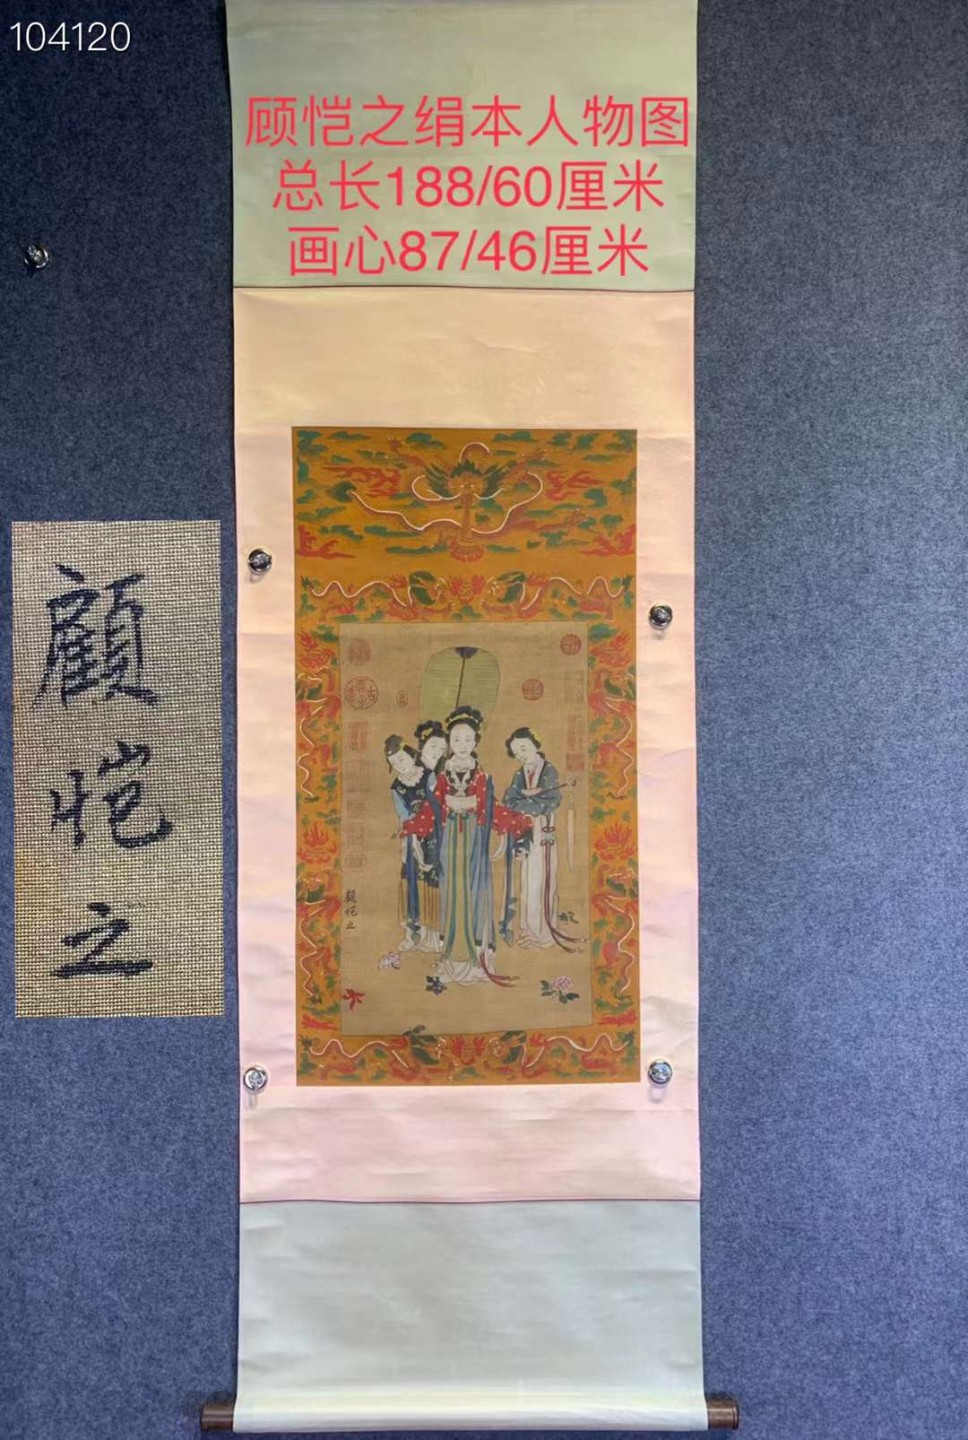 104120
顾恺之绢本人物图
总长188/60厘米
画心87/46厘米
顧
恺
之
顧恺之